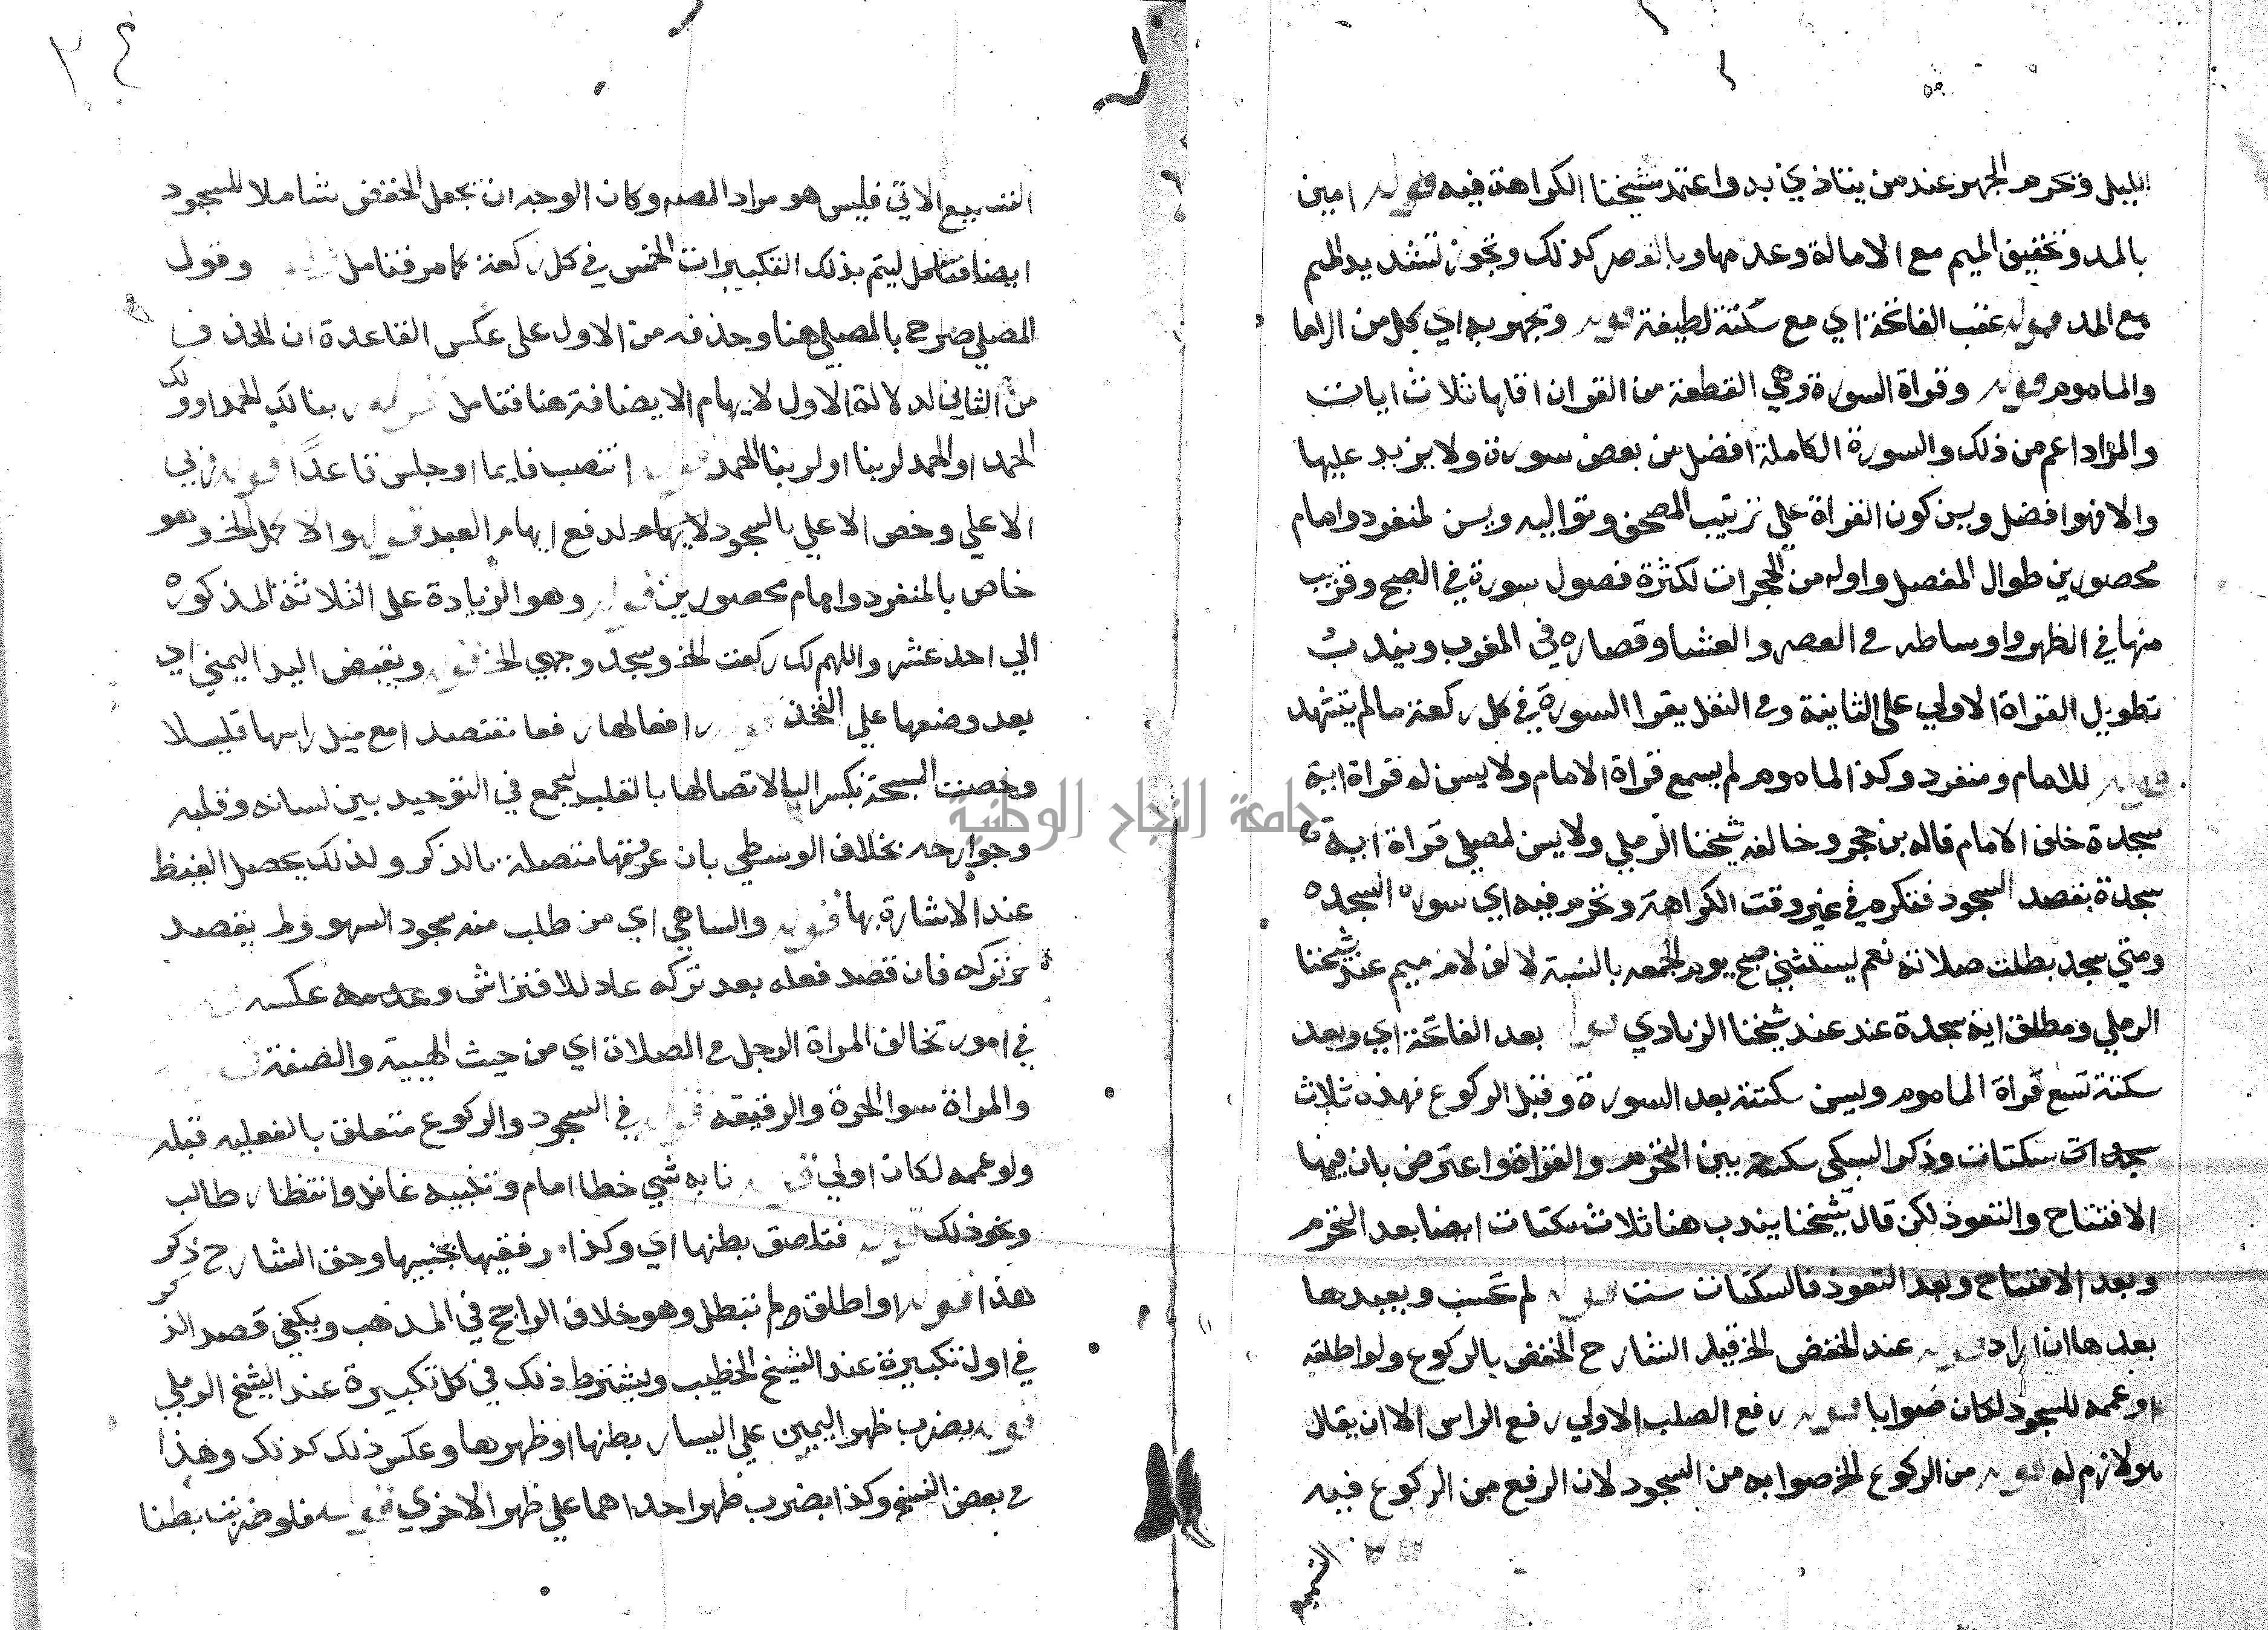 بليل وتحرم الجهر عند من يتاذي به واعتمد شيخنا الكراهة فيه قوله امين
بالمد وتخفيف الميم مع الامالة وعدمها وبالقصر كذلك وتجوز تشديد الميم
مع المد قوله عقب الفاتحة اي مع سكتة لطيفة قوله وتجهر بها اي كل من الاما
والماموم قوله وقراة السورة وهي القطعة من القران اقلها ثلاث ايات
والمراد اعم من ذلك والسورة الكاملة افضل من بعض سورة ولا يزيد عليها
والا فهو افضل ويسن كون القراة علي ترتيب المصحف وتواليه ويسن لمنفرد وامام
محصورين طوال المفصل واوله من الحجرات لكثرة فصول سورة في الصبح وقريب
منها في الظهر واوساطه في العصر والعشا وقصاره في المغرب ويندب
تطويل القراة الاولي على الثانية وفي النفل يقرا السورة في كل ركعة ما لم يتشهد
قوله للامام ومنفرد وكذا الماموم لم يسمع قراة الامام ولا يسن له قراة اية
سجدة خلف الامام قاله بن حجر وخالفه شيخنا الرملي ولا يسن لمصلي قراة اية
سجدة بقصد السجود فتكره في غير وقت الكراهة وتحرم فيه اي سورة السجدة
ومتي سجد بطلت صلاته نعم يستثني صبح يوم الجمعه بالنسبة لالف لام ميم عند شيخنا
الرملي ومطلق اية سجدة عند عند شيخنا الزيادي قوله بعد الفاتحة اي وبعد
سكتة تسع قراة الماموم ويسن سكتة بعد السورة وقبل الركوع فهذه ثلاث
سجدات سكتات وذكر السبكي سكتة بين التحرم والقراة واعترض بان فيها
الافتتاح والتعوذ لكن قال شيخنا يندب هنا ثلاث سكتات ايضا بعد التحرم
وبعد الافتتاح وبعد التعوذ فالسكتات ست قوله لم تحسب ويعيدها
بعدها ان اراد قوله عند الخفض الخ قيد الشارح الخفض بالركوع ولو اطلقه
او عممه للسجود لكان صوابا قوله رفع الصلب الاولي رفع الراس الا ان يقال
هو لازم له قوله من الركوع الخ صوابه من السجود لان الرفع من الركوع فيه
التسميع
٢٤
التسميع الاتي فليس هو مراد المصه وكان الوجه ان تجعل الخفض شاملا للسجود
ايضا فتامل ليتم بذلك التكبيرات الخمس في كل ركعة كما مر فتامل قوله وقول
المصلي صرح بالمصلي هنا وحذفه من الاول على عكس القاعدة ان الحذف
من الثاني لدلالة الاول لايهام الاضافة هنا فتامل قوله ربنا لك الحمد او ولك
الحمد او الحمد لربنا او لربنا الحمد قوله انتصب قايما او جلس قاعدا قوله ربي
الاعلي وخص الاعلي بالسجود لايهام لدفع ايهام البعد قوله والاكمل الخ وهو
خاص بالمنفرد وامام محصورين قوله وهو الزيادة على الثلاثة المذكورة
الي احد عشر واللهم لك ركعت الخ وسجد وجهي الخ قوله ويقبض اليد اليمني اي
بعد وضعها علي الفخذ قوله رافعا لها رفعا مقتصدا مع ميل راسها قليلا
وخصت السبحة بكسر البا لاتصالها بالقلب ليجمع في التوحيد بين لسانه وقلبه
وجوارحه بخلاف الوسطي بان عرقها متصلة بالذكر ولذلك يحصل الغيظ
عند الاشارة بها قوله والساهي اي من طلب منه سجود السهو ولم يقصد
تركه فان قصد فعله بعد تركه عاد للافتراش وعدمه عكسه
في امور تخالف المراة الرجل في الصلاة اي من حيث الهيية والصفة
والمراة سوا الحرة والرقيقه قوله في السجود والركوع متعلق بالفعليه قبله
ولو عممه لكان اولي قوله نابه شي خطا امام وتنبيه غافل وانتظار طالب
ونحو ذلك قوله فتلصق بطنها اي وكذا مرفقيها بجنبيها وحق الشارح ذكر
هذا قوله او اطلق ولم تبطل وهو خلاف الراجح في المذهب ويكفي قصد الذكر
في اول تكبيرة عند الشيخ الخطيب ويشترط ذلك في كل تكبيرة عند الشيخ الرملي
قوله بضرب ظهر اليمين علي اليسار بطنها او ظهرها وعكس ذلك كذلك وهذا
في بعض النسخ وكذا بضرب ظهر احداهما علي ظهر الاخري قوله فلو ضربت بطنا
جامعة النجاح الوطنية